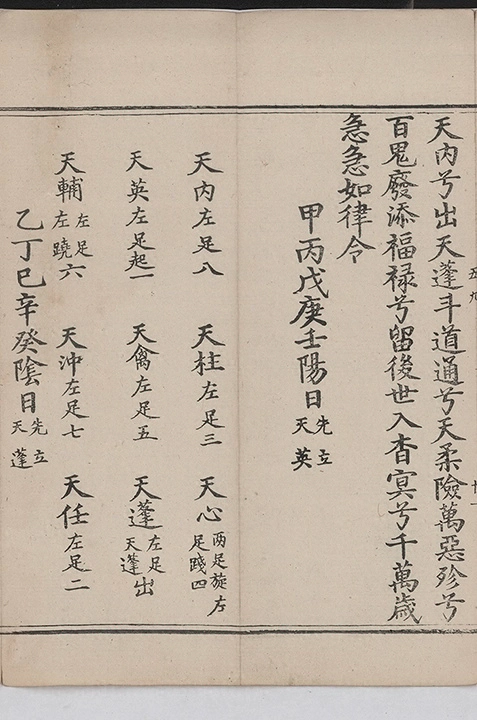 天内兮出天蓬斗道通兮天柔險萬惡殄兮
百鬼廢添福禄兮留後世入杳冥兮千萬歲
急急如律令
甲丙戊庚壬陽日先立天英
天内左足八 天柱左足三 天心两足旋左足踐四
天英左足起一 天禽左足五 天蓬左足天蓬出
天輔左足左蹺六 天沖左足七 天任左足二
乙丁巳辛癸隂日先立天蓬